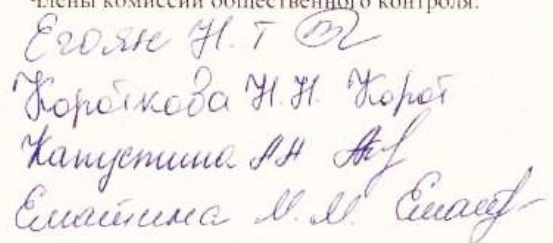 Члены комиссии общественного контроля:
Егоян Н. Т
Короткова Н. Н. Корот
Капустина А Н
Емашина М. М. Емаш